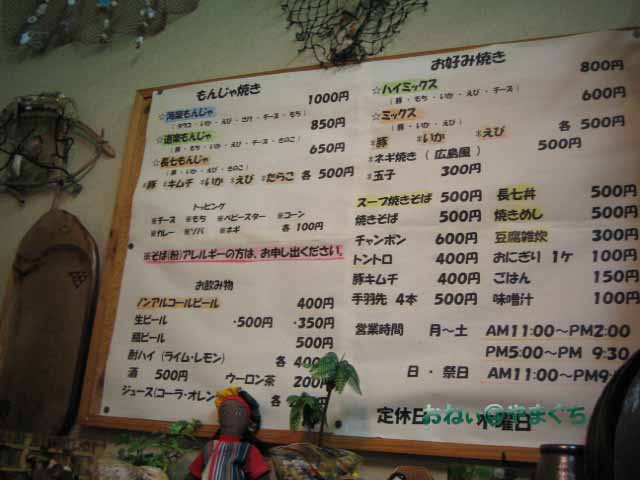 もんじゃ焼き
☆海楽もんじゃ 1000円
(タラコ・いか・えび・さけ・チーズ・もち)
☆道楽もんじゃ 850円
(豚・もち・いか・えび・チーズ・きのこ)
☆長七もんじゃ 650円
(豚・いか・えび・きのこ)
※豚 ※キムチ ※いか ※えび ※たらこ 各 500円
トッピング
※チーズ ※もち ※ベビースター ※コーン
※カレー ※ソバ ※ネギ 各100円
※そば(粉)アレルギーの方は、お申し出ください。
お飲み物
ノンアルコールビール 400円
生ビール ・500円 ・350円
瓶ビール 500円
酎ハイ (ライム・レモン) 各 400
酒 500円 ウーロン茶 200
ジュース(コーラ・オレン 各
お好み焼き
☆ハイミックス 800円
(豚・もち・いか・えび・チーズ)
☆ミックス 600円
(豚・いか・えび)
※豚 ※いか ※えび 各 500円
※ネギ焼き (広島風) 500円
※玉子 300円
スープ焼きそば 500円 長七丼 500円
焼きそば 500円 焼きめし 500円
チャンポン 600円 豆腐雑炊 300円
トントロ 400円 おにぎり 1ケ 100円
豚キムチ 400円 ごはん 150円
手羽先 4本 500円 味噌汁 100円
営業時間 月~土 AM11:00~PM2:00
PM5:00~PM 9:30
日・祭日 AM11:00~PM9
定休日 水曜日
おねい@やまぐち